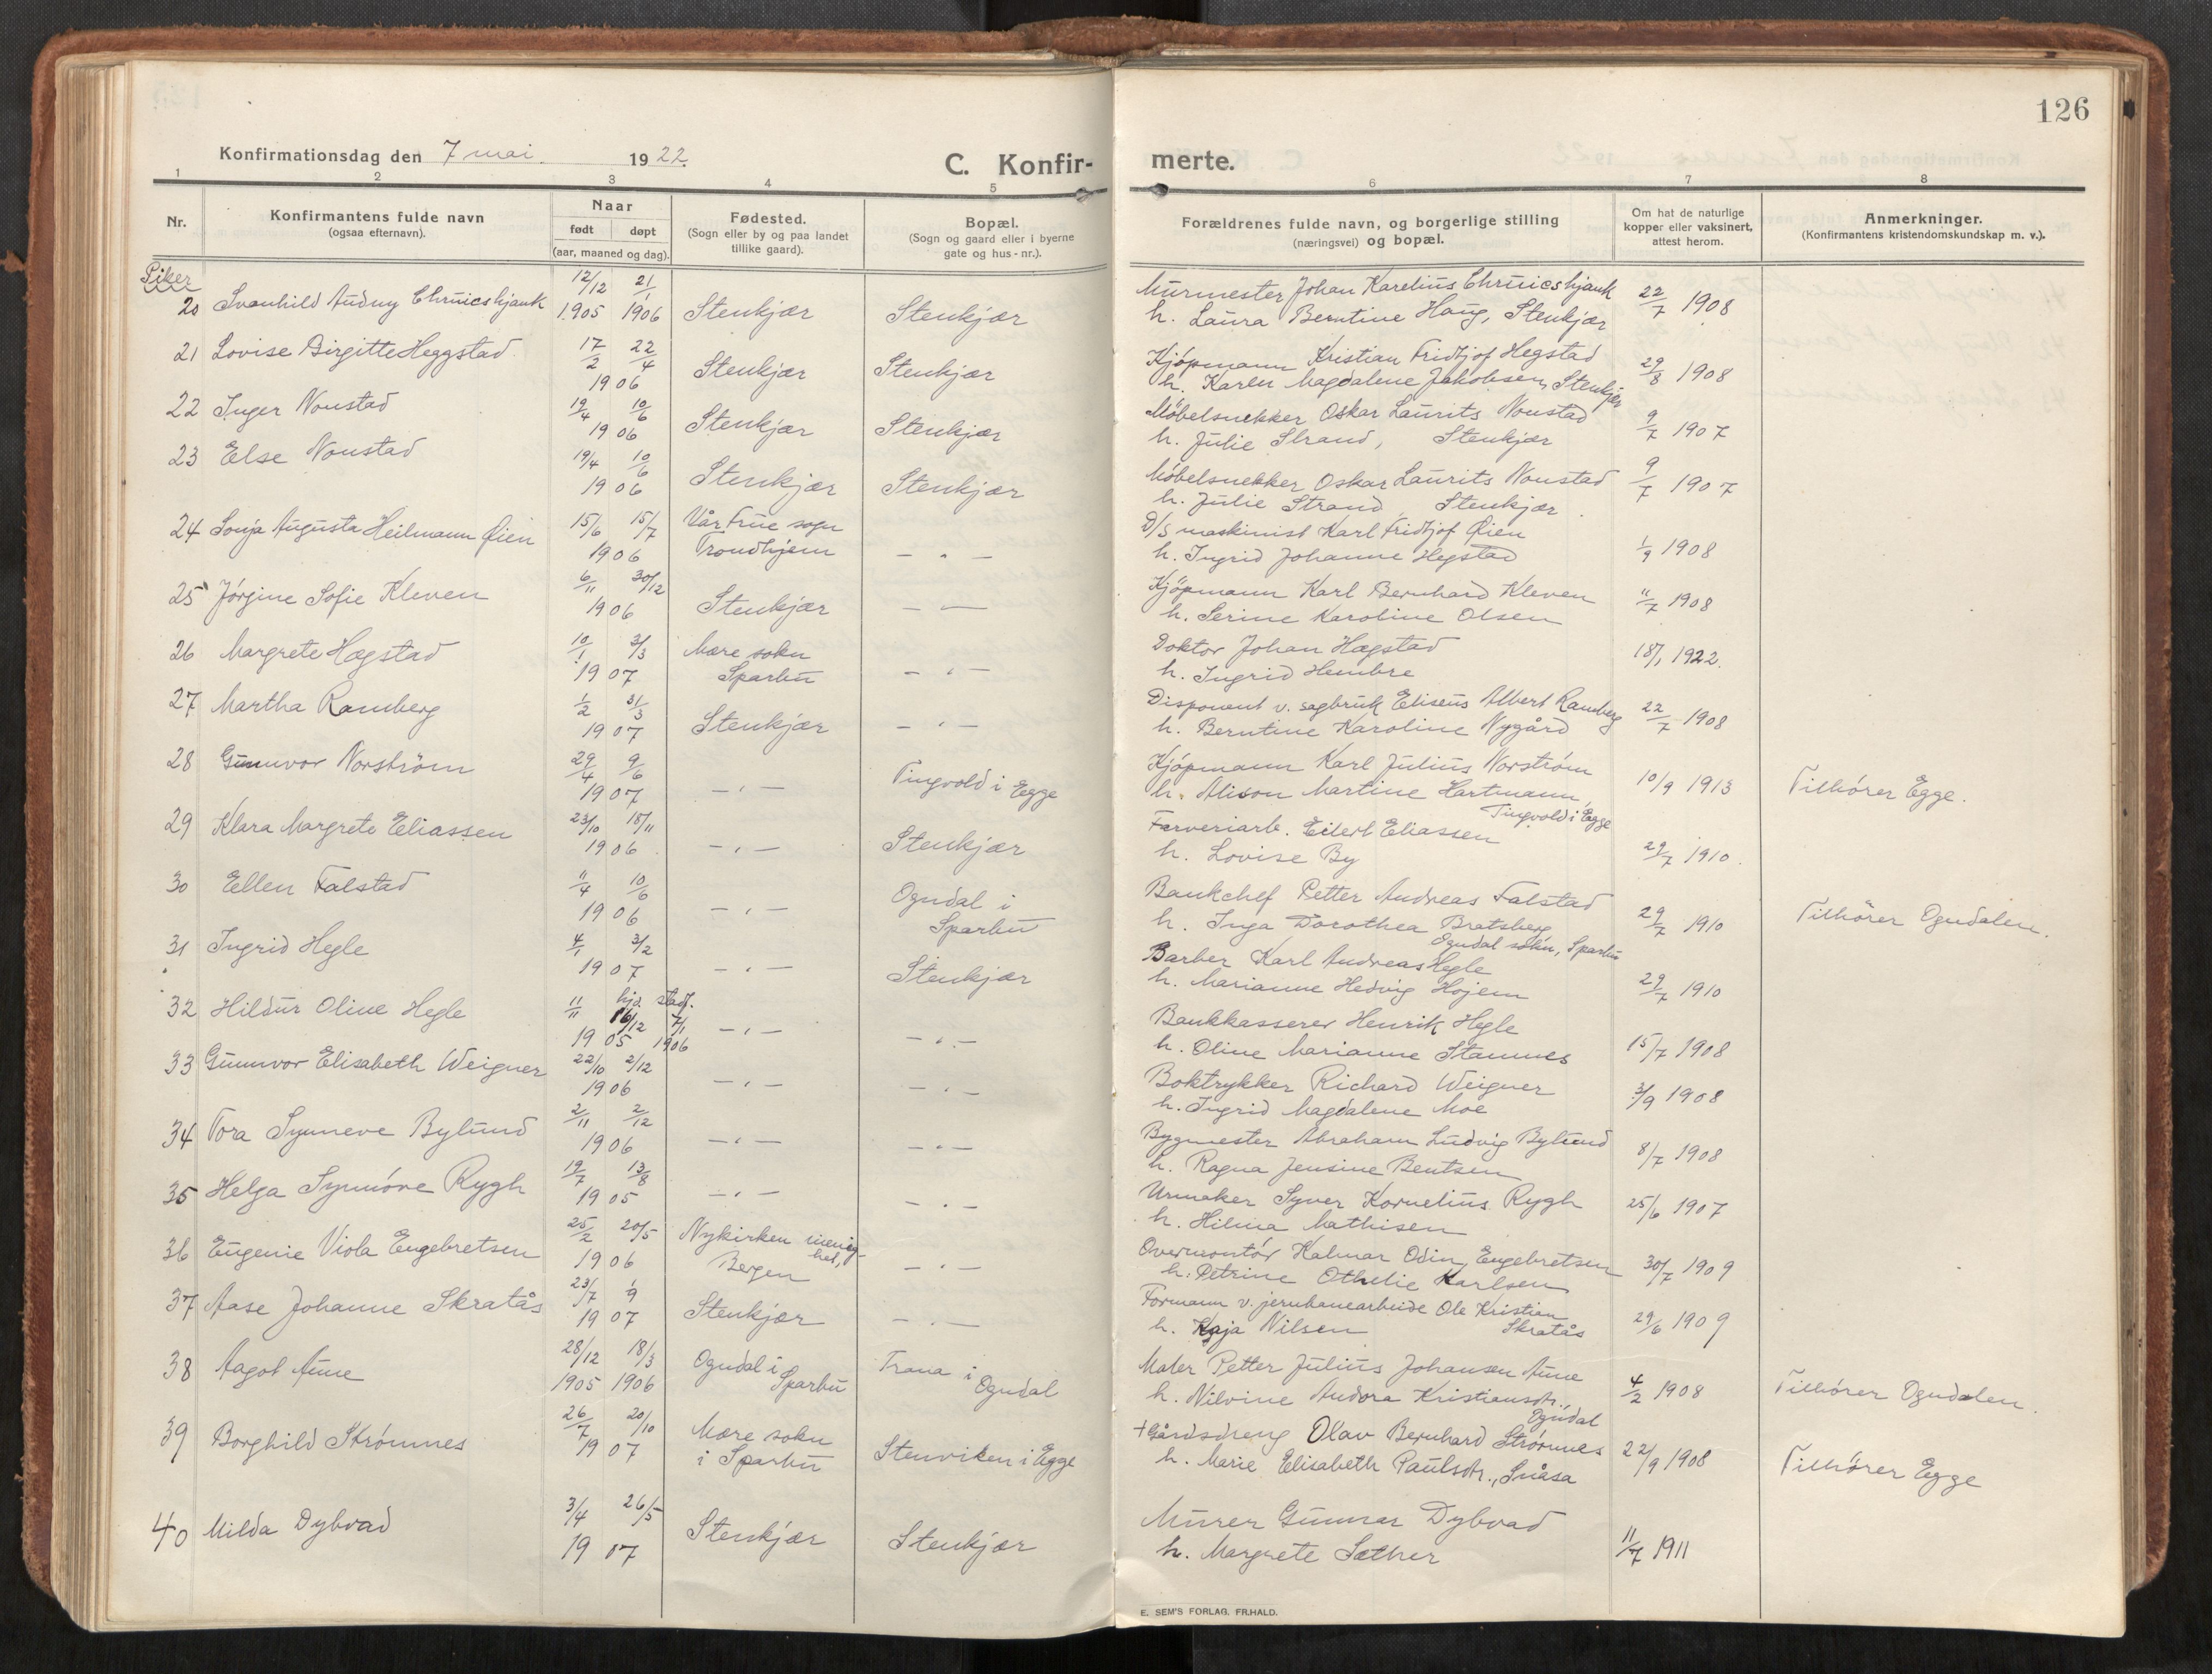 126
Konfirmationsdag den 7 mai. 1922.
C. Konfir-
merte.
1 2 3 4 5 6 7 8
Nr.
Konfirmantens fulde navn
(ogsaa efternavn).
Naar
født døpt
(aar, maaned og dag).
Fødested.
(Sogn eller by og paa landet
tillike gaard).
Bopæl.
(Sogn og gaard eller i byerne
gate og hus-nr.).
Forældrenes fulde navn, og borgerlige stilling
(næringsvei) og bopæl.
Om hat de naturlige
kopper eller vaksinert,
attest herom.
Anmerkninger.
(Konfirmantens kristendomskundskap m. v.).
Piker
20 Svanhild Audny 12/12 1905 21/1 1906 Stenkjær Stenkjær Murmester Johan Karelius 22/7 1908
h. Laura Berntine Haug, Stenkjær
21 Lovise Birgitte Heggstad 17/2 22/4 1906 Stenkjær Stenkjær Kjöpmann Kristian Fridtjof Hegstad 29/8 1908
h. Karen Magdalene Jakobsen, Stenkjær
22 Inger Noustad 19/4 10/6 1906 Stenkjær Stenkjær Möbelsnekker Oskar Laurits Noustad 9/7 1907
h. Julie Strand, Stenkjær
23 Else Noustad 19/4 10/6 1906 Stenkjær Stenkjær Möbelsnekker Oskar Laurits Noustad 9/7 1907
h. Julie Strand, Stenkjær.
24 Sonja Augusta Heilmann Øien 15/6 15/7 1906 Vår Frue sogn Trondhjem – " – D/S maskinist Karl Fridtjof Øien 1/9 1908
h. Ingrid Johanne Hegstad
25 Jørgine Sofie Kleven 6/11 30/12 1906 Stenkjær – " – Kjöpmann Karl Bernhard Kleven 11/7 1908
h. Serine Karoline Olsen
26 Margrete Hægstad 10/1 3/3 1907 Mære sokn Sparbu – " – Doktor Johan Hægstad 18/1 1922.
h. Ingrid Hembre
27 Martha Ramberg 1/2 31/3 1907 Stenkjær – " – Disponent v. sagbruk Eliseus Albert Ramberg 22/7 1908
h. Berntine Karoline Nygård
28 Gunnvor Norström 29/4 9/6 1907 – " – Tingvold i Egge Kjöpmann Karl Julius Norström 10/9 1913 Tilhører Egge.
h. Alison Martine Hartmann, Tingvold i Egge
29 Klara Margrete Eliassen 23/10 18/11 1906 – " – Stenkjær Farveriarb. Eilert Eliassen 29/7 1910.
h. Lovise By
30 Ellen Falstad 11/4 10/6 1906 – " – Ogndal i Sparbu Bankchef Petter Andreas Falstad 29/7 1910 Tilhörer Ogndalen.
h. Inga Dorothea Bratsberg Ogndal sokn, Sparbu
31 Ingrid Hegle 4/1 3/2 1907 – " – Stenkjær Barber Karl Andreas Hegle 29/7 1910
h. Marianne Hedvig Hojem
32 Hildur Oline Hegle 11/11 1905 hjd. 16/12 stadf. 7/1 1906 – " – – " – Bankkasserer Henrik Hegle 15/7 1908
h. Oline Marianne Stamnes
33 Gunnvor Elisabeth Weigner 22/10 2/12 1906 – " – – " – Boktrykker Richard Weigner 3/9 1908
h. Ingrid Magdalene Moe
34 Tora Synneve Bylund 2/11 2/12 1906 – " – – " – Bygmester Abraham Ludvig Bylund 8/7 1908
h. Ragna Jensine Bentsen
35 Helga Synnöve Rygh 19/7 13/8 1905 – " – – " – Urmaker Syver Kornelius Rygh 25/6 1907
h. Hilma Mathisen
36 Eugenie Viola Engebretsen 25/2 20/5 1906 Nykirken menighet, Bergen – " – Overmontör Halmar Odin Engebretsen 30/7 1909
h. Petrine Othelie Karlsen
37 Aase Johanne Skratås 23/7 1/9 1907 Stenkjær – " – Formann v. jernbanearbeide Ole Kristian Skratås 29/6 1909
h. Kaja Nilsen
38 Aagot Aune 28/12 1905 18/3 1906 Ogndal i Sparbu Trana i Ogndal Maler Petter Julius Johansen Aune 4/2 1908 Tilhörer Ogndalen.
h. Nilvine Andora Kristiansdtr., Ogndal
39 Borghild Strømnes 26/7 20/10 1907 Mære sokn i Sparbu Stenviken i Egge + Gårdsdreng Olav Bernhard Strømnes 22/9 1908 Tilhører Egge
h. Marie Elisabeth Paulsdtr., Snåsa
40 Milda Dybvad 3/4 26/5 1907 Stenkjær Stenkjær Murer Gunnar Dybvad 11/7 1911
h. Margrete Sæther
E. SEM'S FORLAG. FR.HALD.